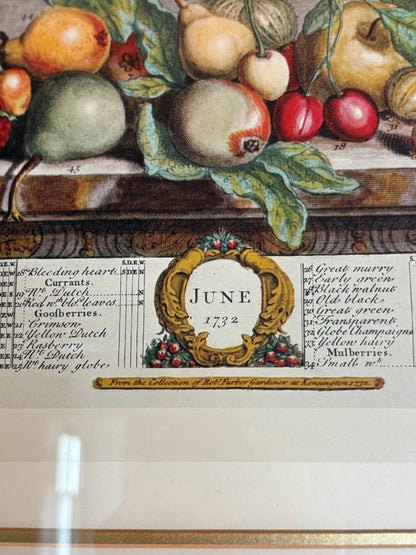 44
45
18
S.D.E.W.
S.D.E.W.
18 Bleeding heart.
Currants.
19 Wt. Dutch
20 Red wt. blo. leaves
Goosberries.
21 Crimson
22 Yellow Dutch
23 Rasberry
24 Wt. Dutch
25 Wt. hairy globe
JUNE
1732
26 Great murry
27 Early green
28 Black walnut
29 Old black
30 Great green
31 Transparent
32 Globe Champaign
33 Yellow hairy
Mulberries.
34 Small wt.
From the Collection of Robt. Furber Gardiner at Kensington 1732.